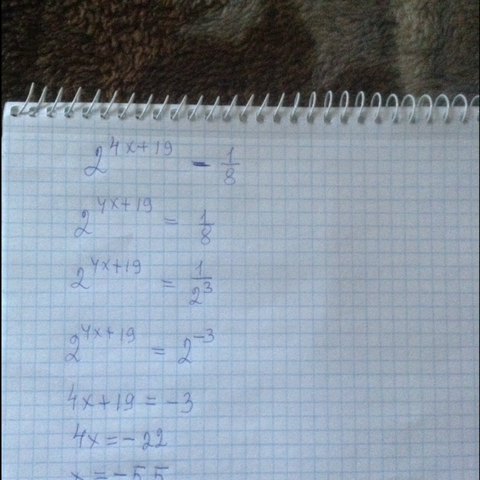 2^{4x+19} - \frac{1}{8}
2^{4x+19} = \frac{1}{8}
2^{4x+19} = \frac{1}{2^3}
2^{4x+19} = 2^{-3}
4x+19 = -3
4x = -22
x = -5,5